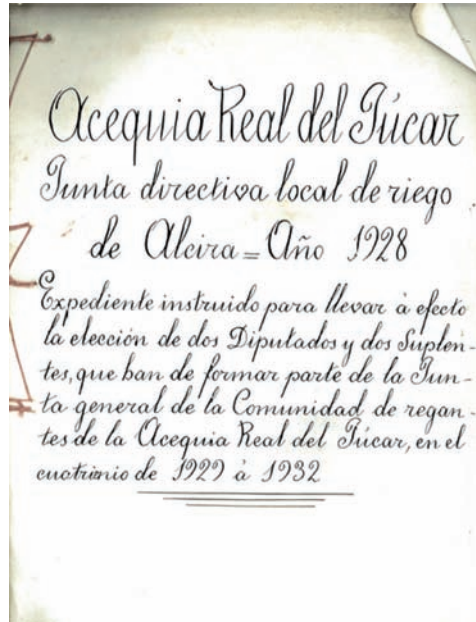 Acequia Real del Júcar
Junta directiva local de riego
de Alcira = Año 1928
Expediente instruido para llevar à efecto
la elección de dos Diputados y dos Suplen-
tes, que han de formar parte de la Jun-
ta general de la Comunidad de regan-
tes de la Acequia Real del Júcar, en el
cuatrinio de 1929 à 1932